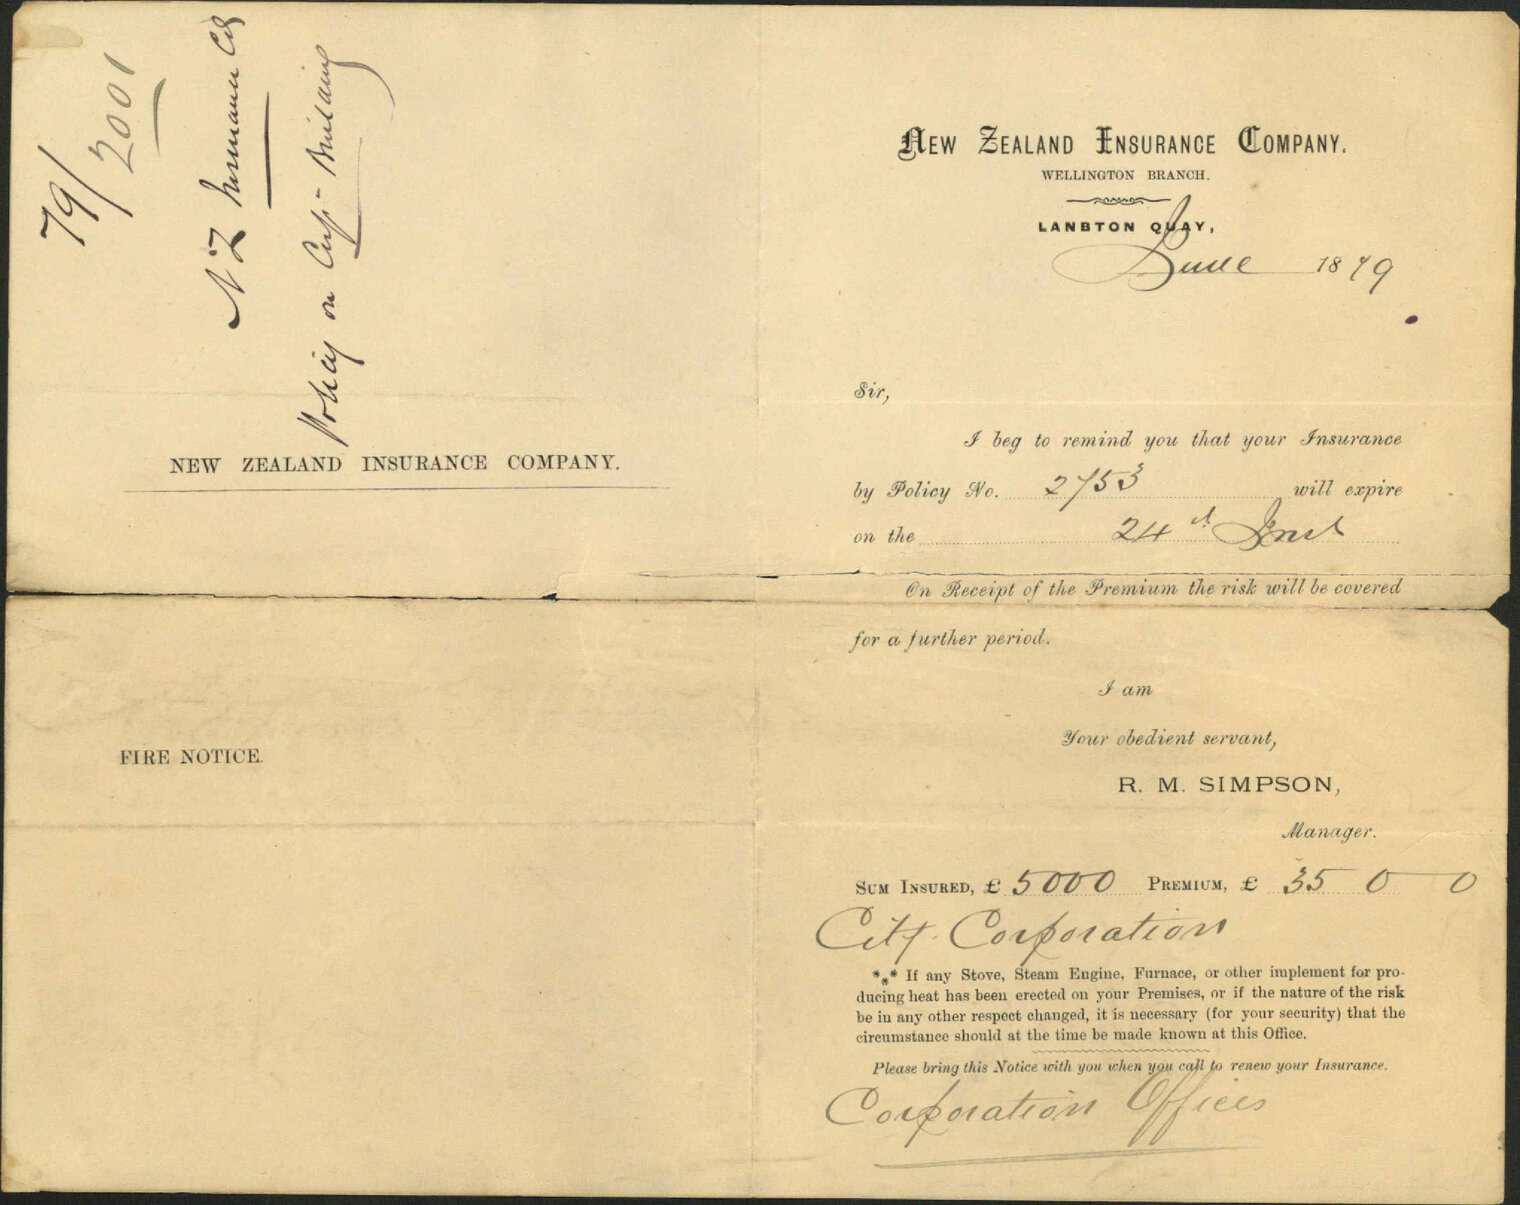 79/
2001
N.Z Insurance Co
Policy on Corp. Building
NEW ZEALAND INSURANCE COMPANY.
FIRE NOTICE.
NEW ZEALAND INSURANCE COMPANY.
WELLINGTON BRANCH.
LANBTON QUAY,
June 1879
Sir,
I beg to remind you that your Insurance
by Policy No. 2753 will expire
on the 24th Inst
On Receipt of the Premium the risk will be covered
for a further period.
I am
Your obedient servant,
R. M. SIMPSON,
Manager.
SUM INSURED, £ 5000 PREMIUM, £ 35 0 0
City Corporation
*** If any Stove, Steam Engine, Furnace, or other implement for pro-
ducing heat has been erected on your Premises, or if the nature of the risk
be in any other respect changed, it is necessary (for your security) that the
circumstance should at the time be made known at this Office.
Please bring this Notice with you when you call to renew your Insurance.
Corporation Offices